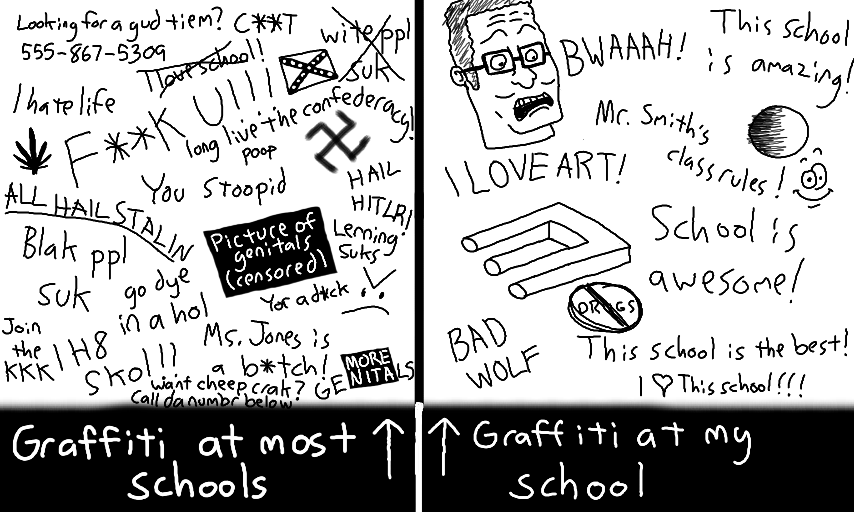 Looking for a gud tiem?
555-867-5309
C**T
I love school!
wite ppl
suk
I hate life
F**K U!!!!
long live the confederacy!
poop
You Stoopid
HAIL
HITLR!
ALL HAIL STALIN
Blak ppl
suk
Picture of
genitals
(censored)
Lerning
Suks
go dye
in a hol
Yor a d*ck
Join
the
KKK
I H8
Skol!!!
Ms. Jones is
a b*tch!
MORE
GENITALS
want cheep crak?
Call da numbr below
Graffiti at most ↑
schools
BWAAAH!
This school
is amazing!
Mr. Smith's
class rules!
I LOVE ART!
School is
awesome!
DRUGS
BAD
WOLF
This school is the best!
I ♡ This school!!!
↑ Graffiti at my
school